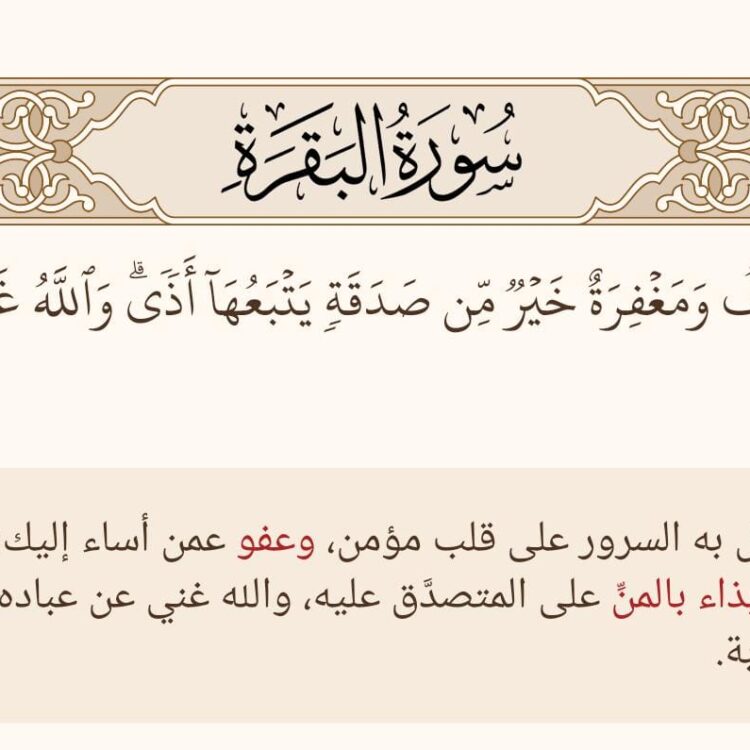 سُورَةُ البَقَرَةِ
وَمَغۡفِرَةٌ خَيۡرٞ مِّن صَدَقَةٖ يَتۡبَعُهَآ أَذٗىۗ وَٱللَّهُ
به السرور على قلب مؤمن، وعفو عمن أساء إليك
بالمنِّ على المتصدَّق عليه، والله غني عن عباده